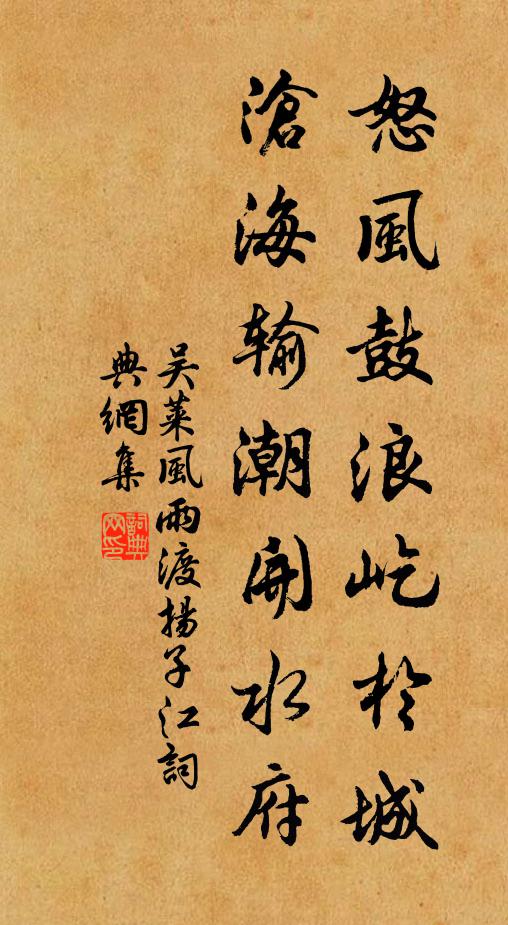 怒風鼓浪屹於城
滄海输潮開水府
吴萊風雨渡揚子江詞
典網集
詞典
网印